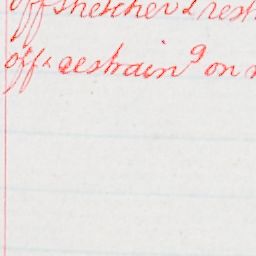 off stretcher & rest
off & restrain g on